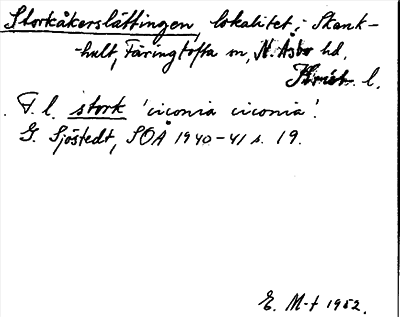 Storkåkerslättingen, lokalitet i Skänk-
-hult, Färingtofta sn, N. Åsbo hd,
Krist. l.
F. l. stork 'ciconia ciconia'.
G. Sjöstedt, SOÅ 1940-41 s. 19.
E. M-t 1952.